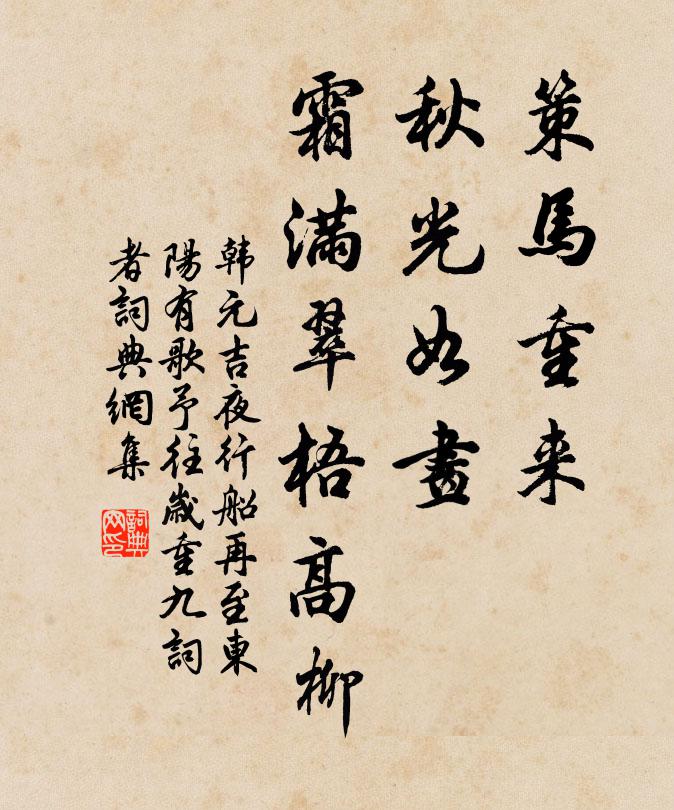 策馬重来
秋光如畫
霜滿翠梧高柳
韩元吉夜行船再至東
陽有歌予往歲重九詞
者詞典網集
詞典
网印